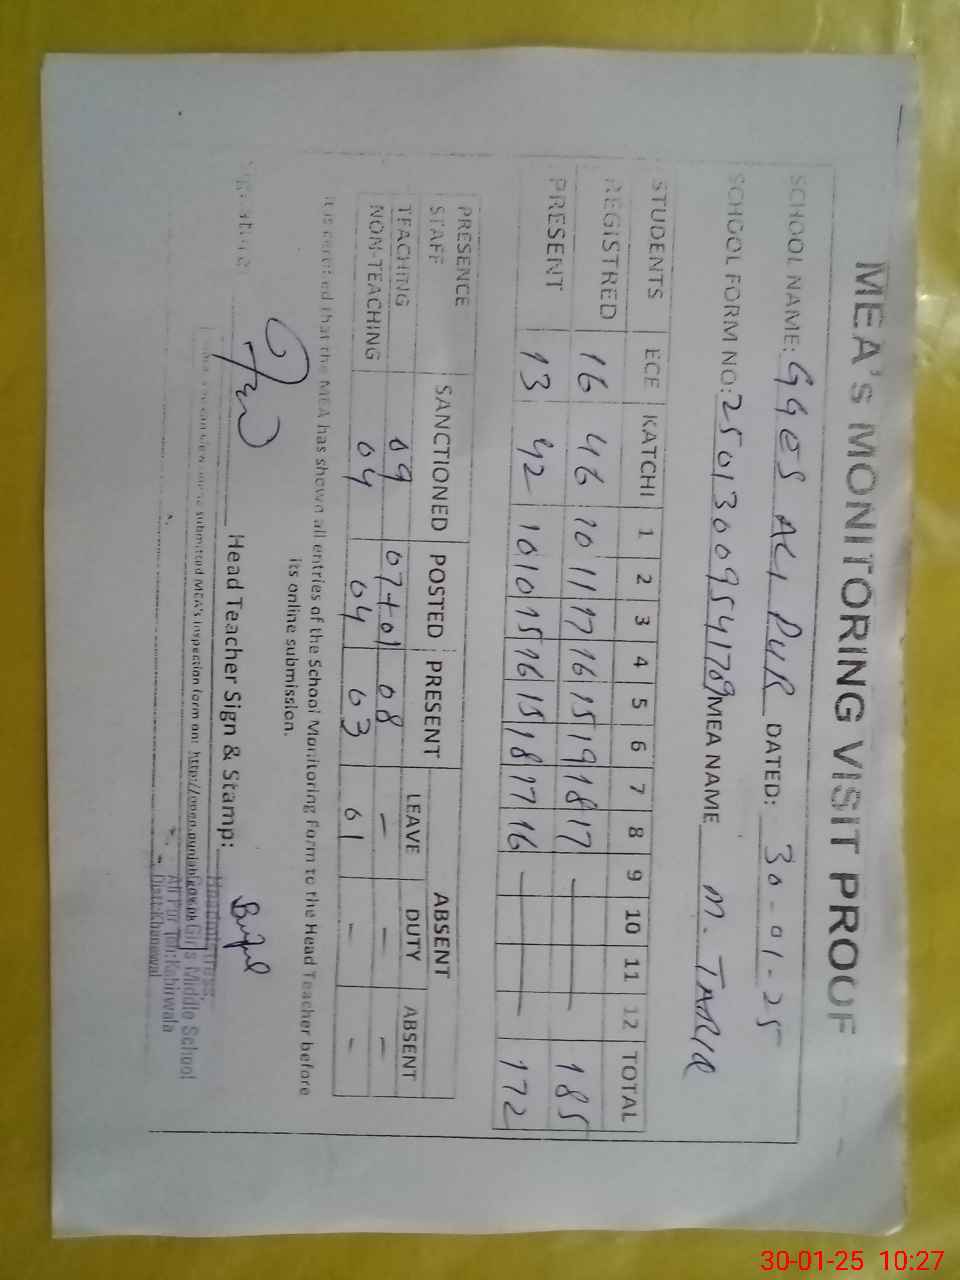 MEA's MONITORING VISIT PROOF
SCHOOL NAME: GGES ALI PUR DATED: 30-01-25
SCHOOL FORM NO: 25013009541709 MEA NAME M. TARIQ
STUDENTS ECE KATCHI 1 2 3 4 5 6 7 8 9 10 11 12 TOTAL
REGISTRED 16 46 10 11 17 16 15 19 18 17 — 185
PRESENT 13 42 10 10 15 16 15 18 17 16 — 172
PRESENCE SANCTIONED POSTED PRESENT ABSENT
STAFF LEAVE DUTY ABSENT
TEACHING 09 07+01 08 - - -
NON-TEACHING 04 04 03 01 - -
It is certified that the MEA has shown all entries of the School Monitoring Form to the Head Teacher before
its online submission.
Signature: Head Teacher Sign & Stamp:
you can view online submitted MEA's inspection form on: http://open.punjab.gov.pk
Headmistress
Girls Middle School
Ali Pur Teh: Kabirwala
Distt: Khanewal
30-01-25 10:27